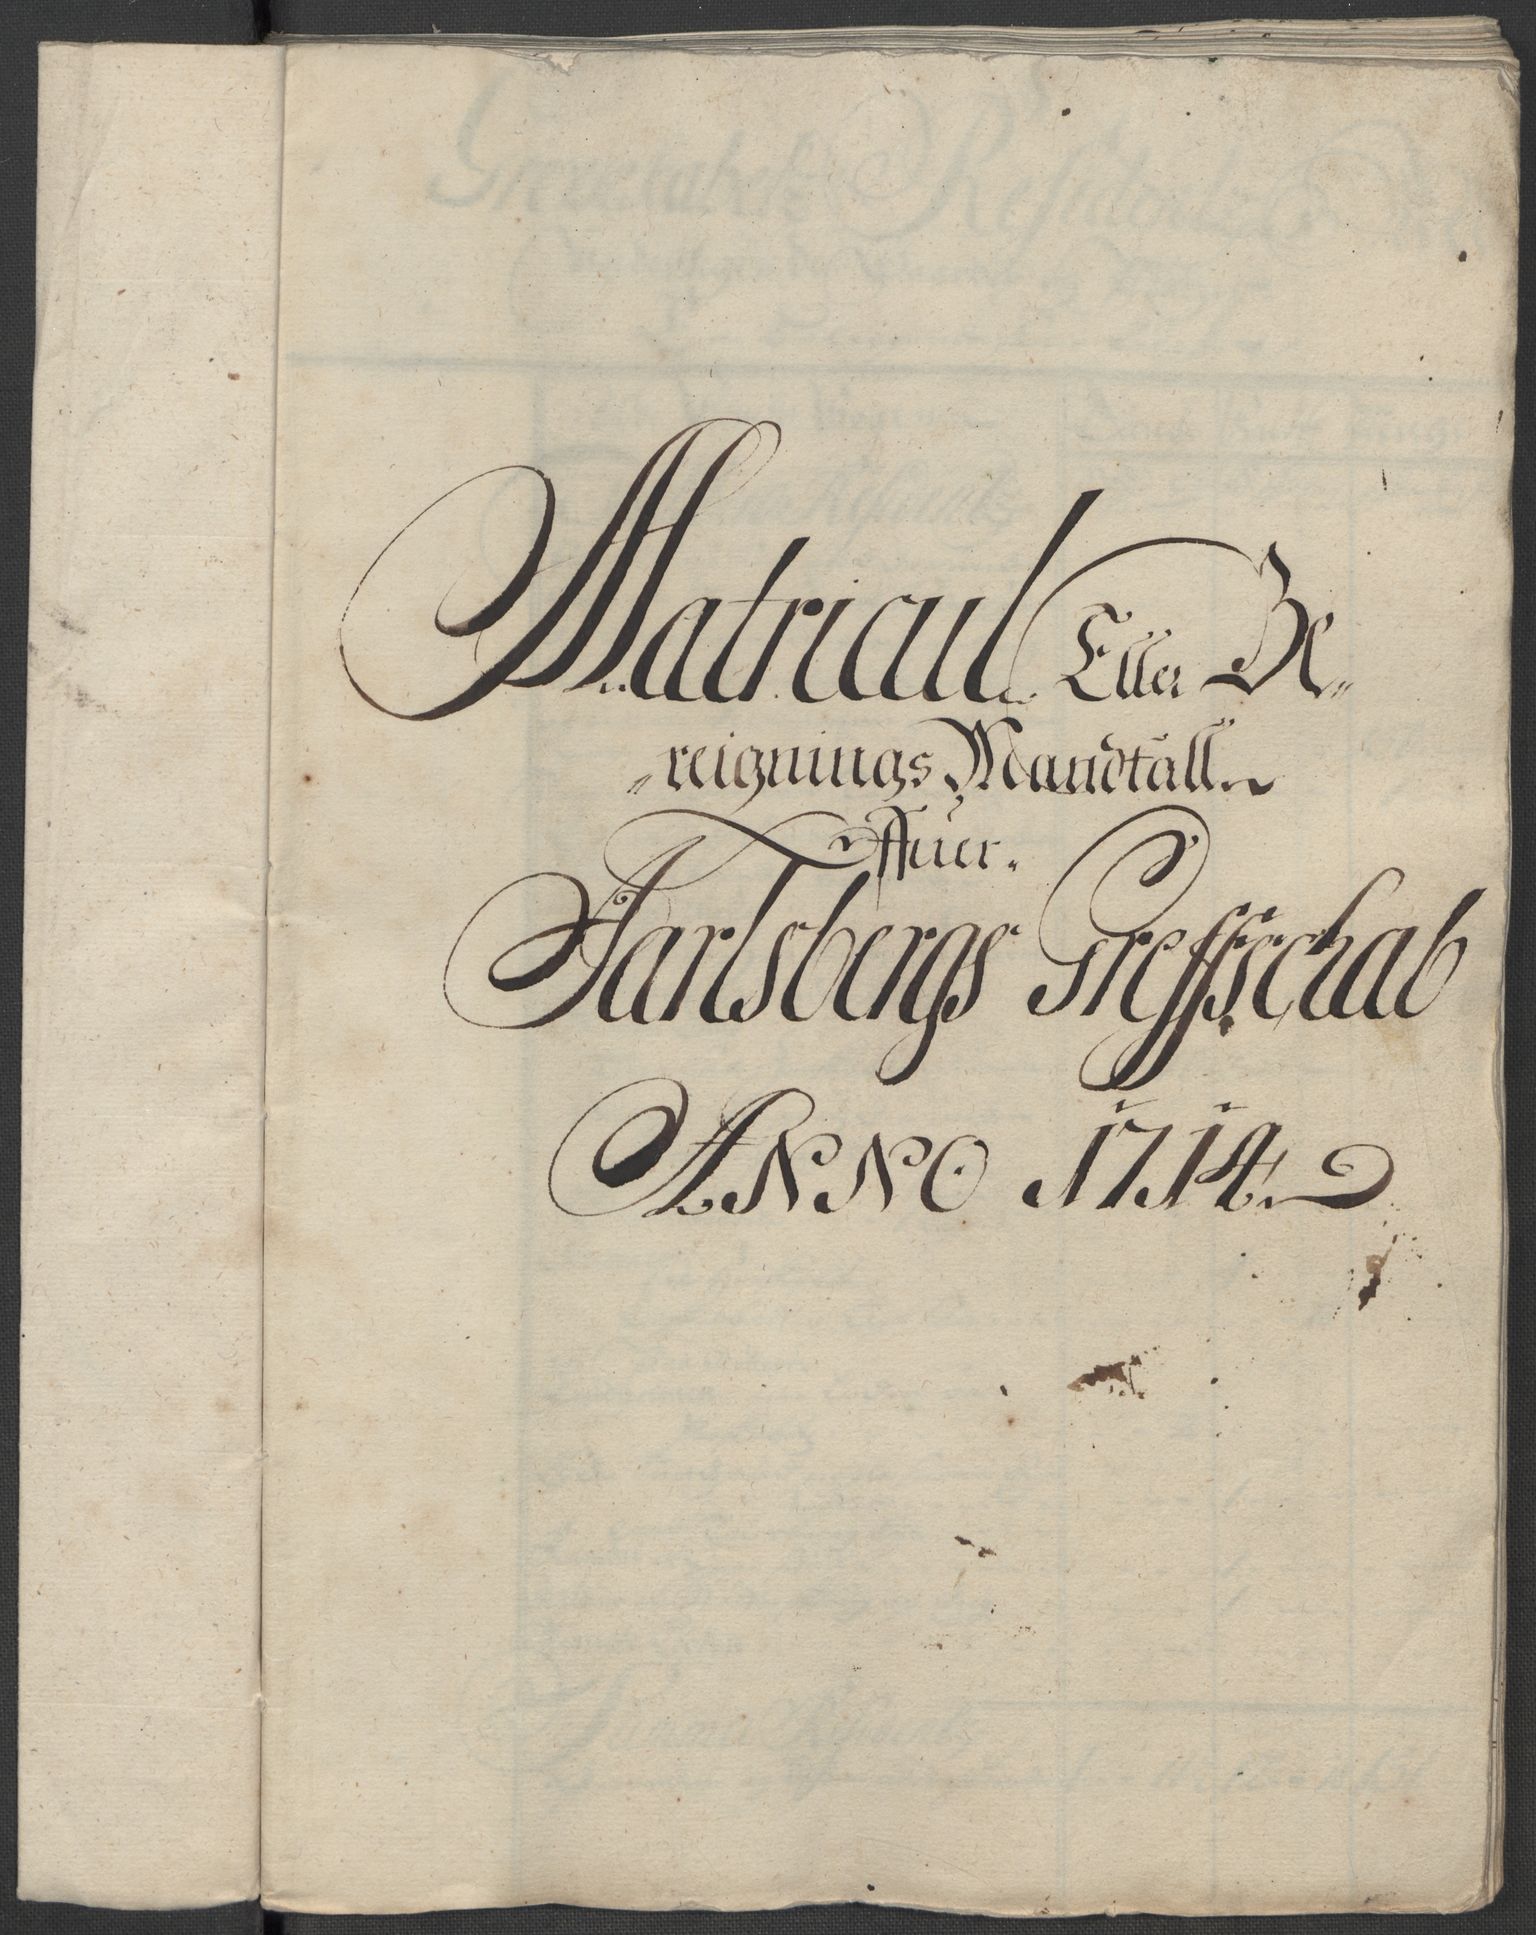 Matricul Eller Be„
„reignings Mandtall
Offuer.
Jarlsbergs Greffschab
ANNO 1714.